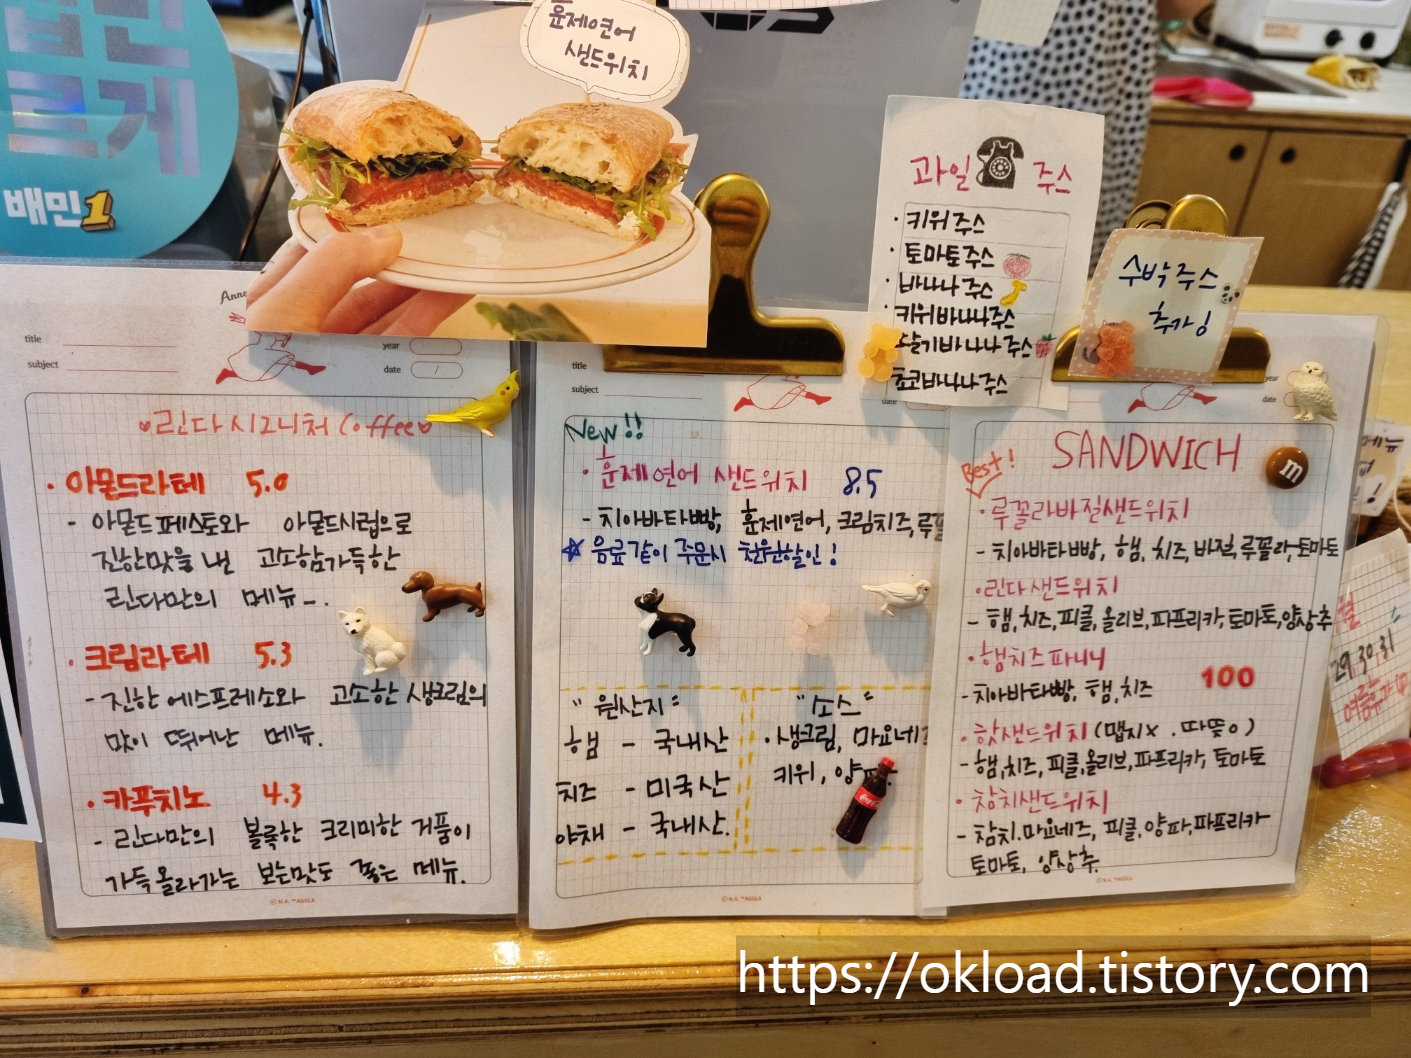 배민1
훈제연어
샌드위치
과일 주스
· 키위주스
· 토마토주스
· 바나나주스
· 키위바나나주스
딸기바나나주스
초코바나나주스
수박주스
추가!
Anne
title
subject
year
date
♡린다시그니처 Coffee♡
· 아몬드라떼 5.0
- 아몬드페스토와 아몬드시럽으로
진한맛을 낸 고소함가득한
린다만의 메뉴-.
· 크림라떼 5.3
- 진한 에스프레소와 고소한 생크림의
맛이 뛰어난 메뉴.
· 카푸치노 4.3
- 린다만의 볼륨한 크리미한 거품이
가득올라가는 보는맛도 좋은 메뉴.
ⓒ N.A. ™AGGLA
title
subject
date
New!!
· 훈제연어 샌드위치 8.5
- 치아바타빵, 훈제연어, 크림치즈, 루꼴
☆ 음료같이 주문시 천원할인!
"원산지"
햄 - 국내산
치즈 - 미국산
야채 - 국내산.
"소스"
· 생크림, 마요네즈
키위, 양파.
Coca-Cola
ⓒ N.A. ™AGGLA
year
date
Best!
SANDWICH
m
· 루꼴라바질샌드위치
- 치아바타빵, 햄, 치즈, 바질, 루꼴라, 토마토
· 린다샌드위치
- 햄, 치즈, 피클, 올리브, 파프리카, 토마토, 양상추
· 햄치즈파니니
- 치아바타빵, 햄, 치즈
100
· 핫샌드위치 (맵지x . 따뜻o)
- 햄, 치즈, 피클, 올리브, 파프리카, 토마토
· 참치샌드위치
- 참치.마요네즈, 피클, 양파, 파프리카
토마토, 양상추.
ⓒ N.A. ™AGGLA
메뉴
29.30.31
여름휴가
https://okload.tistory.com